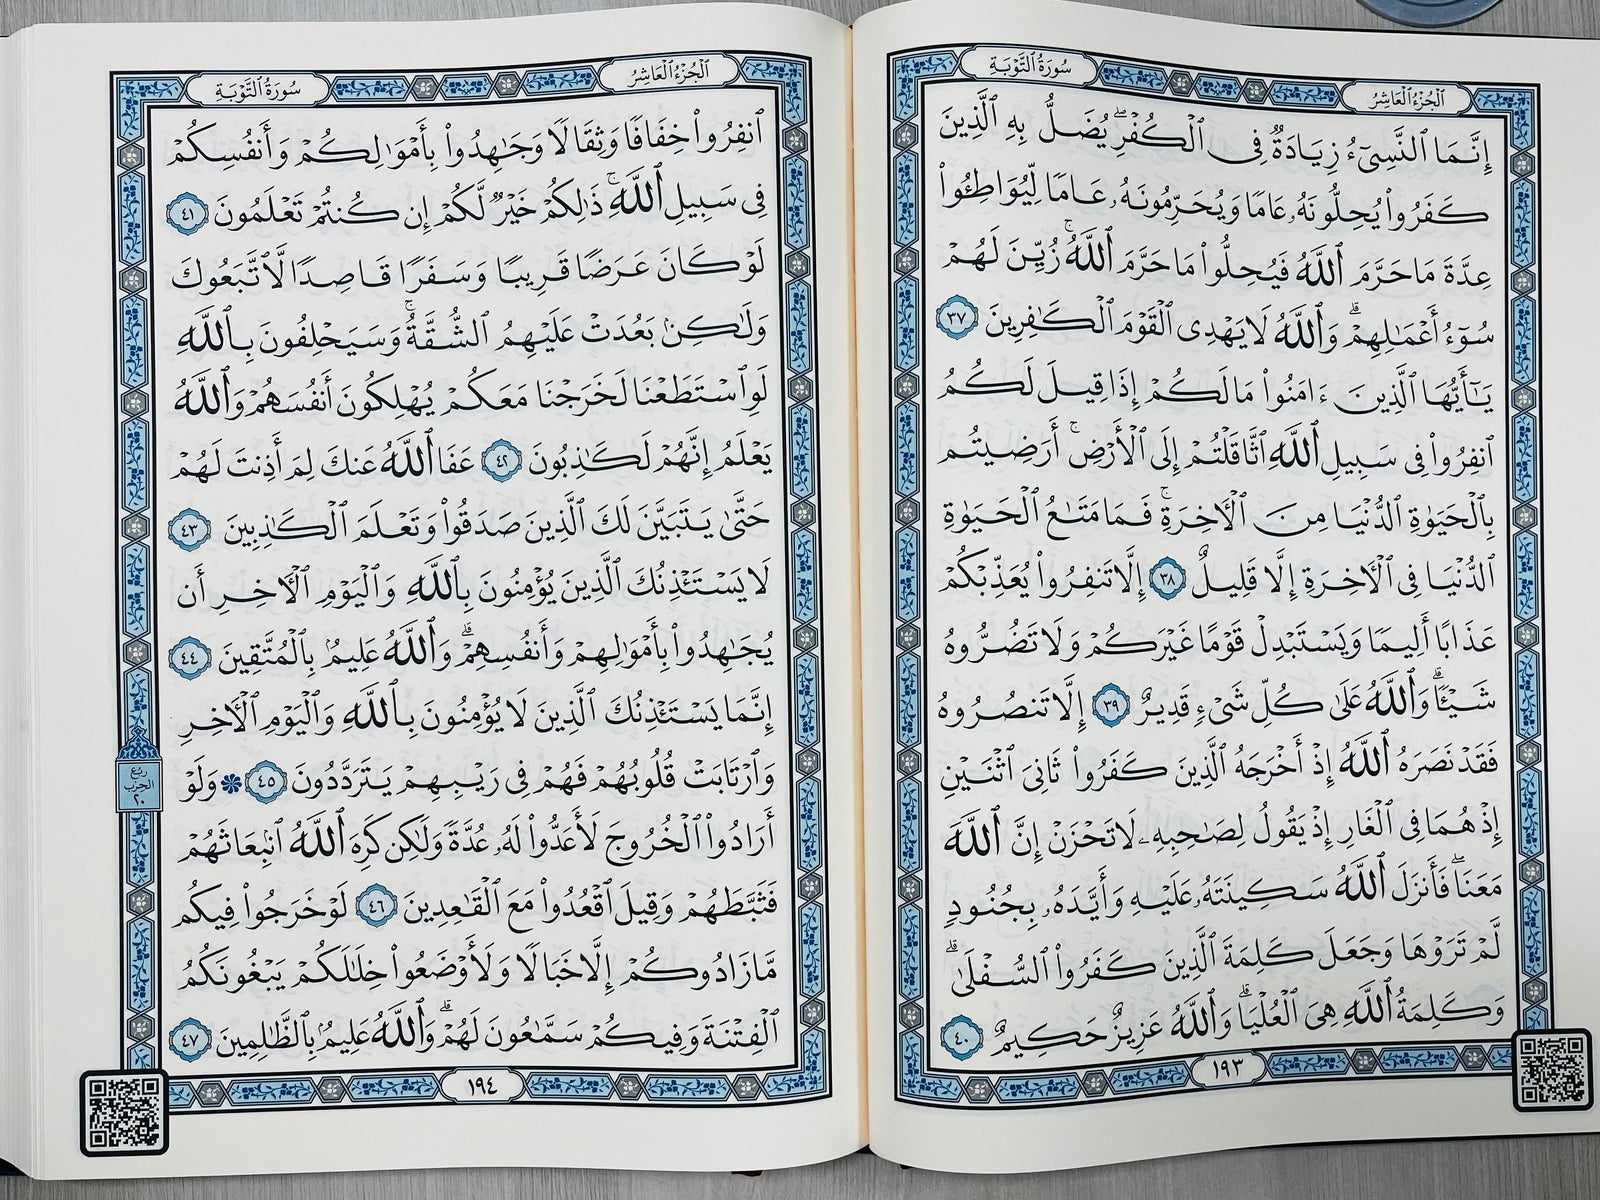 سُورَةُ التَّوْبَةِ
الجُزْءُ العَاشِرُ
إِنَّمَا ٱلنَّسِىٓءُ زِيَادَةٌ فِى ٱلْكُفْرِ ۖ يُضَلُّ بِهِ ٱلَّذِينَ
كَفَرُوا۟ يُحِلُّونَهُۥ عَامًا وَيُحَرِّمُونَهُۥ عَامًا لِّيُوَاطِـُٔوا۟
عِدَّةَ مَا حَرَّمَ ٱللَّهُ فَيُحِلُّوا۟ مَا حَرَّمَ ٱللَّهُ ۚ زُيِّنَ لَهُمْ
سُوٓءُ أَعْمَـٰلِهِمْ ۗ وَٱللَّهُ لَا يَهْدِى ٱلْقَوْمَ ٱلْكَـٰفِرِينَ ٣٧
يَـٰٓأَيُّهَا ٱلَّذِينَ ءَامَنُوا۟ مَا لَكُمْ إِذَا قِيلَ لَكُمُ
ٱنفِرُوا۟ فِى سَبِيلِ ٱللَّهِ ٱثَّاقَلْتُمْ إِلَى ٱلْأَرْضِ ۚ أَرَضِيتُم
بِٱلْحَيَوٰةِ ٱلدُّنْيَا مِنَ ٱلْـَٔاخِرَةِ ۚ فَمَا مَتَـٰعُ ٱلْحَيَوٰةِ
ٱلدُّنْيَا فِى ٱلْـَٔاخِرَةِ إِلَّا قَلِيلٌ ٣٨ إِلَّا تَنفِرُوا۟ يُعَذِّبْكُمْ
عَذَابًا أَلِيمًا وَيَسْتَبْدِلْ قَوْمًا غَيْرَكُمْ وَلَا تَضُرُّوهُ
شَيْـًٔا ۗ وَٱللَّهُ عَلَىٰ كُلِّ شَىْءٍ قَدِيرٌ ٣٩ إِلَّا تَنصُرُوهُ
فَقَدْ نَصَرَهُ ٱللَّهُ إِذْ أَخْرَجَهُ ٱلَّذِينَ كَفَرُوا۟ ثَانِىَ ٱثْنَيْنِ
إِذْ هُمَا فِى ٱلْغَارِ إِذْ يَقُولُ لِصَـٰحِبِهِۦ لَا تَحْزَنْ إِنَّ ٱللَّهَ
مَعَنَا ۖ فَأَنزَلَ ٱللَّهُ سَكِينَتَهُۥ عَلَيْهِ وَأَيَّدَهُۥ بِجُنُودٍ
لَّمْ تَرَوْهَا وَجَعَلَ كَلِمَةَ ٱلَّذِينَ كَفَرُوا۟ ٱلسُّفْلَىٰ ۗ
وَكَلِمَةُ ٱللَّهِ هِىَ ٱلْعُلْيَا ۗ وَٱللَّهُ عَزِيزٌ حَكِيمٌ ٤٠
١٩٣
سُورَةُ التَّوْبَةِ
الجُزْءُ العَاشِرُ
ٱنفِرُوا۟ خِفَافًا وَثِقَالًا وَجَـٰهِدُوا۟ بِأَمْوَٰلِكُمْ وَأَنفُسِكُمْ
فِى سَبِيلِ ٱللَّهِ ۚ ذَٰلِكُمْ خَيْرٌ لَّكُمْ إِن كُنتُمْ تَعْلَمُونَ ٤١
لَوْ كَانَ عَرَضًا قَرِيبًا وَسَفَرًا قَاصِدًا لَّٱتَّبَعُوكَ
وَلَـٰكِنۢ بَعُدَتْ عَلَيْهِمُ ٱلشُّقَّةُ ۚ وَسَيَحْلِفُونَ بِٱللَّهِ
لَوِ ٱسْتَطَعْنَا لَخَرَجْنَا مَعَكُمْ يُهْلِكُونَ أَنفُسَهُمْ وَٱللَّهُ
يَعْلَمُ إِنَّهُمْ لَكَـٰذِبُونَ ٤٢ عَفَا ٱللَّهُ عَنكَ لِمَ أَذِنتَ لَهُمْ
حَتَّىٰ يَتَبَيَّنَ لَكَ ٱلَّذِينَ صَدَقُوا۟ وَتَعْلَمَ ٱلْكَـٰذِبِينَ ٤٣
لَا يَسْتَـْٔذِنُكَ ٱلَّذِينَ يُؤْمِنُونَ بِٱللَّهِ وَٱلْيَوْمِ ٱلْـَٔاخِرِ أَن
يُجَـٰهِدُوا۟ بِأَمْوَٰلِهِمْ وَأَنفُسِهِمْ ۗ وَٱللَّهُ عَلِيمٌۢ بِٱلْمُتَّقِينَ ٤٤
إِنَّمَا يَسْتَـْٔذِنُكَ ٱلَّذِينَ لَا يُؤْمِنُونَ بِٱللَّهِ وَٱلْيَوْمِ ٱلْـَٔاخِرِ
وَٱرْتَابَتْ قُلُوبُهُمْ فَهُمْ فِى رَيْبِهِمْ يَتَرَدَّدُونَ ٤٥ ۞ وَلَوْ
أَرَادُوا۟ ٱلْخُرُوجَ لَأَعَدُّوا۟ لَهُۥ عُدَّةً وَلَـٰكِن كَرِهَ ٱللَّهُ ٱنۢبِعَاثَهُمْ
فَثَبَّطَهُمْ وَقِيلَ ٱقْعُدُوا۟ مَعَ ٱلْقَـٰعِدِينَ ٤٦ لَوْ خَرَجُوا۟ فِيكُم
مَّا زَادُوكُمْ إِلَّا خَبَالًا وَلَأَوْضَعُوا۟ خِلَـٰلَكُمْ يَبْغُونَكُمُ
ٱلْفِتْنَةَ وَفِيكُمْ سَمَّـٰعُونَ لَهُمْ ۗ وَٱللَّهُ عَلِيمٌۢ بِٱلظَّـٰلِمِينَ ٤٧
ربع
الحزب
٢٠
١٩٤